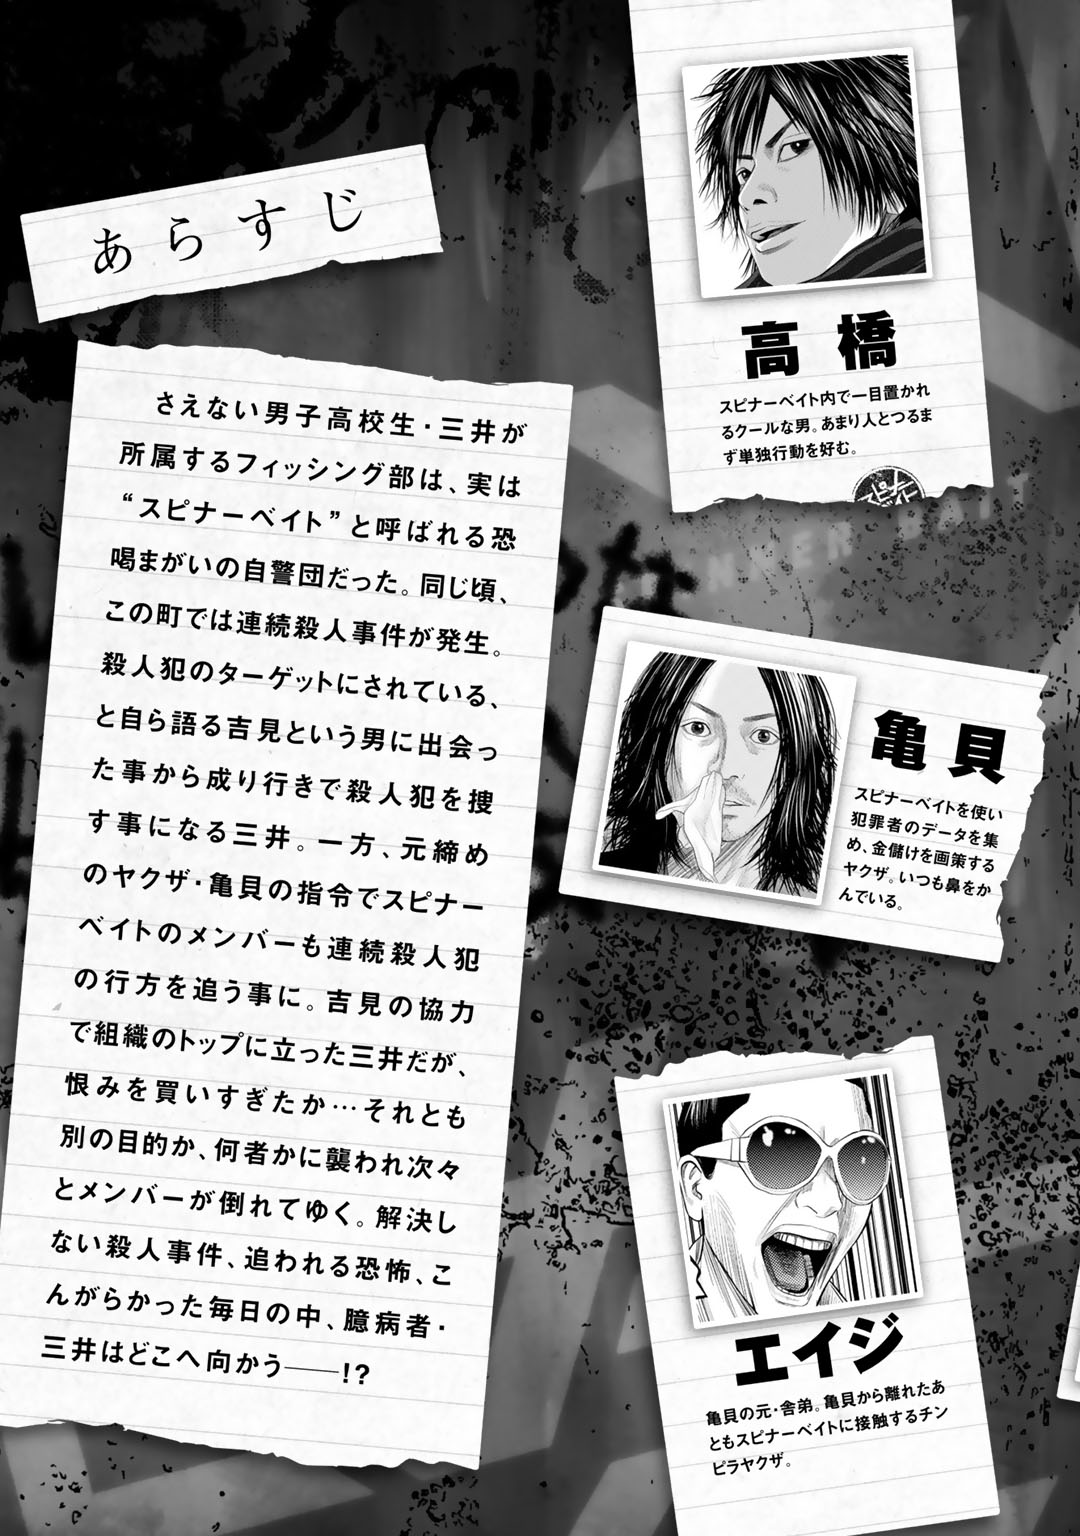 あらすじ
さえない男子高校生・三井が
所属するフィッシング部は、実は
“スピナーベイト”と呼ばれる恐
喝まがいの自警団だった。同じ頃、
この町では連続殺人事件が発生。
殺人犯のターゲットにされている、
と自ら語る吉見という男に出会っ
た事から成り行きで殺人犯を捜
す事になる三井。一方、元締め
のヤクザ・亀貝の指令でスピナー
ベイトのメンバーも連続殺人犯
の行方を追う事に。吉見の協力
で組織のトップに立った三井だが、
恨みを買いすぎたか…それとも
別の目的か、何者かに襲われ次々
とメンバーが倒れてゆく。解決し
ない殺人事件、追われる恐怖、こ
んがらかった毎日の中、臆病者・
三井はどこへ向かう――!?
高橋
スピナーベイト内で一目置かれ
るクールな男。あまり人とつるま
ず単独行動を好む。
スピナー
ベイト
亀貝
スピナーベイトを使い
犯罪者のデータを集
め、金儲けを画策する
ヤクザ。いつも鼻をか
んでいる。
エイジ
亀貝の元・舎弟。亀貝から離れたあ
ともスピナーベイトに接触するチン
ピラヤクザ。